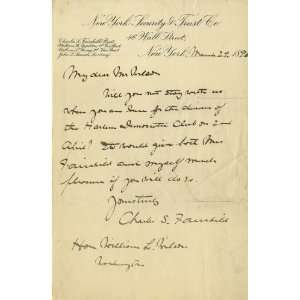 New York Security & Trust Co.
46 Wall Street,
Charles S. Fairchild, Prest.
New York, March 22, 189
My dear Mr Wilson
Will you not stay with us
when you are here for the dinner of
the Harlem Democratic Club on 2nd
April? It would give both Mrs
Fairchild and myself much
pleasure if you will do so.
Yours truly
Charles S. Fairchild
Hon William L. Wilson
Washington